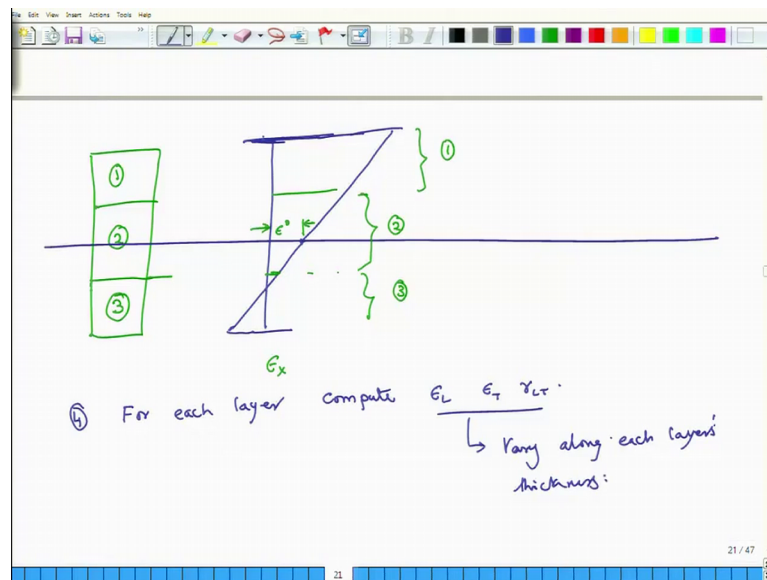 File Edit View Insert Actions Tools Help
B I
① ①
② ϵ° ②
③ ③
ϵx
④ For each layer compute ϵL ϵT γLT.
↳ Vary along each layers'
thickness:
21 / 47
21